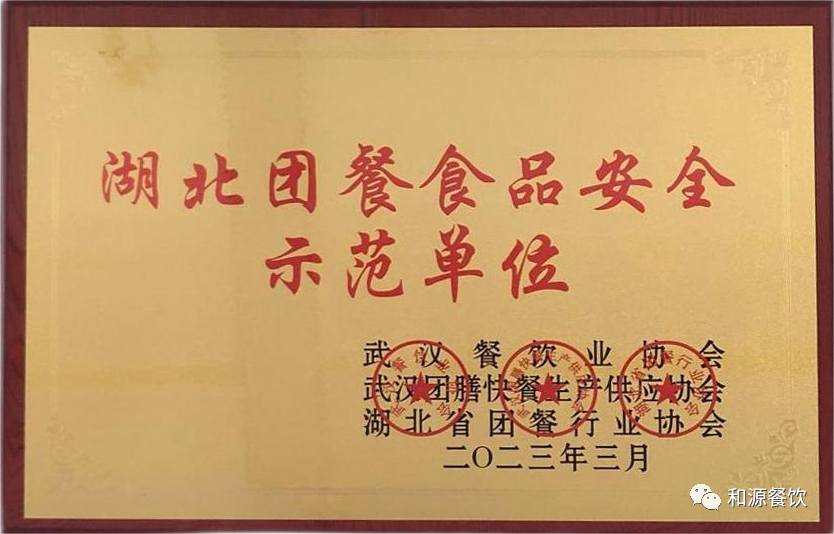 湖北团餐食品安全
示范单位
武汉餐饮业协会
武汉团膳快餐生产供应协会
湖北省团餐行业协会
二〇二三年三月
和源餐饮